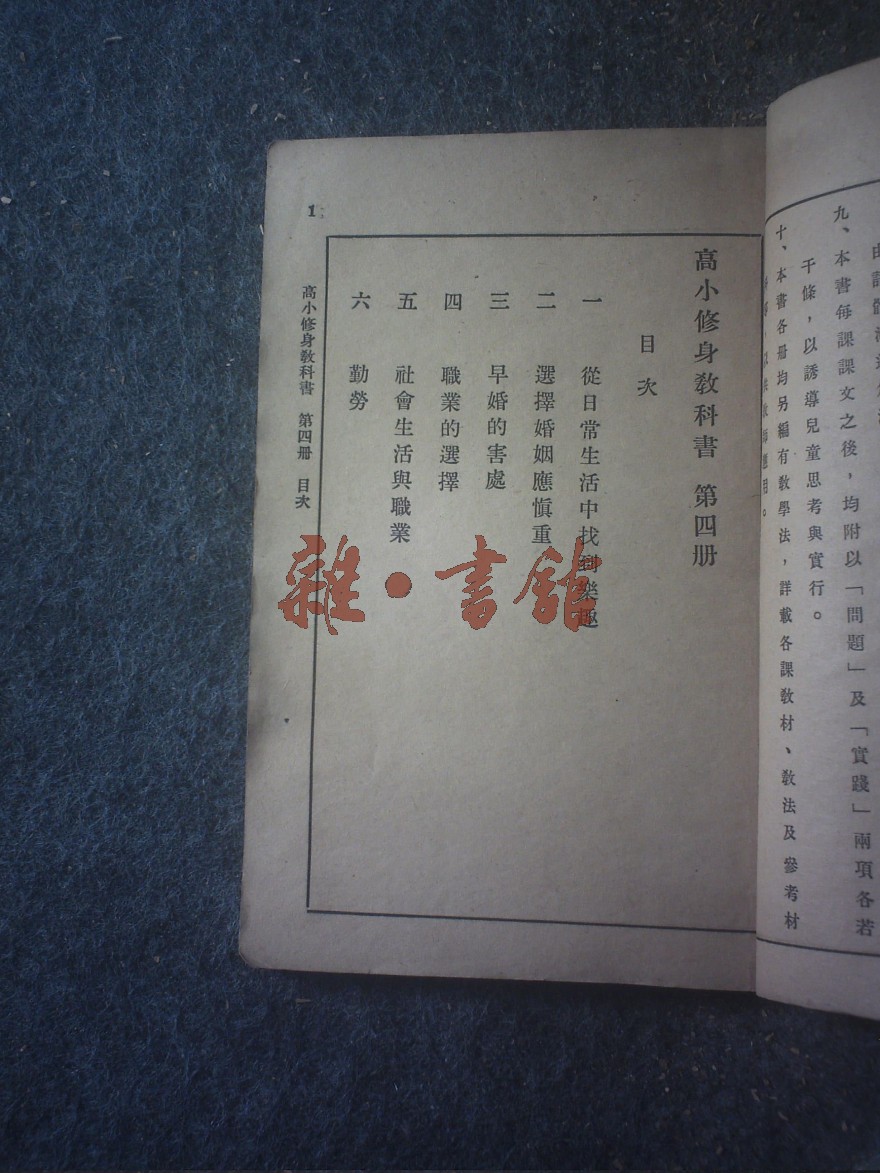 九、本書每課課文之後，均附以「問題」及「實踐」兩項各若
干條，以誘導兒童思考與實行。
十、本書各冊均另編有教學法，詳載各課教材、教法及參考材
高小修身教科書 第四冊
目次
一 從日常生活中找到樂趣
二 選擇婚姻應慎重
三 早婚的害處
四 職業的選擇
五 社會生活與職業
六 勤勞
高小修身教科書 第四冊 目次
1
雜·書館